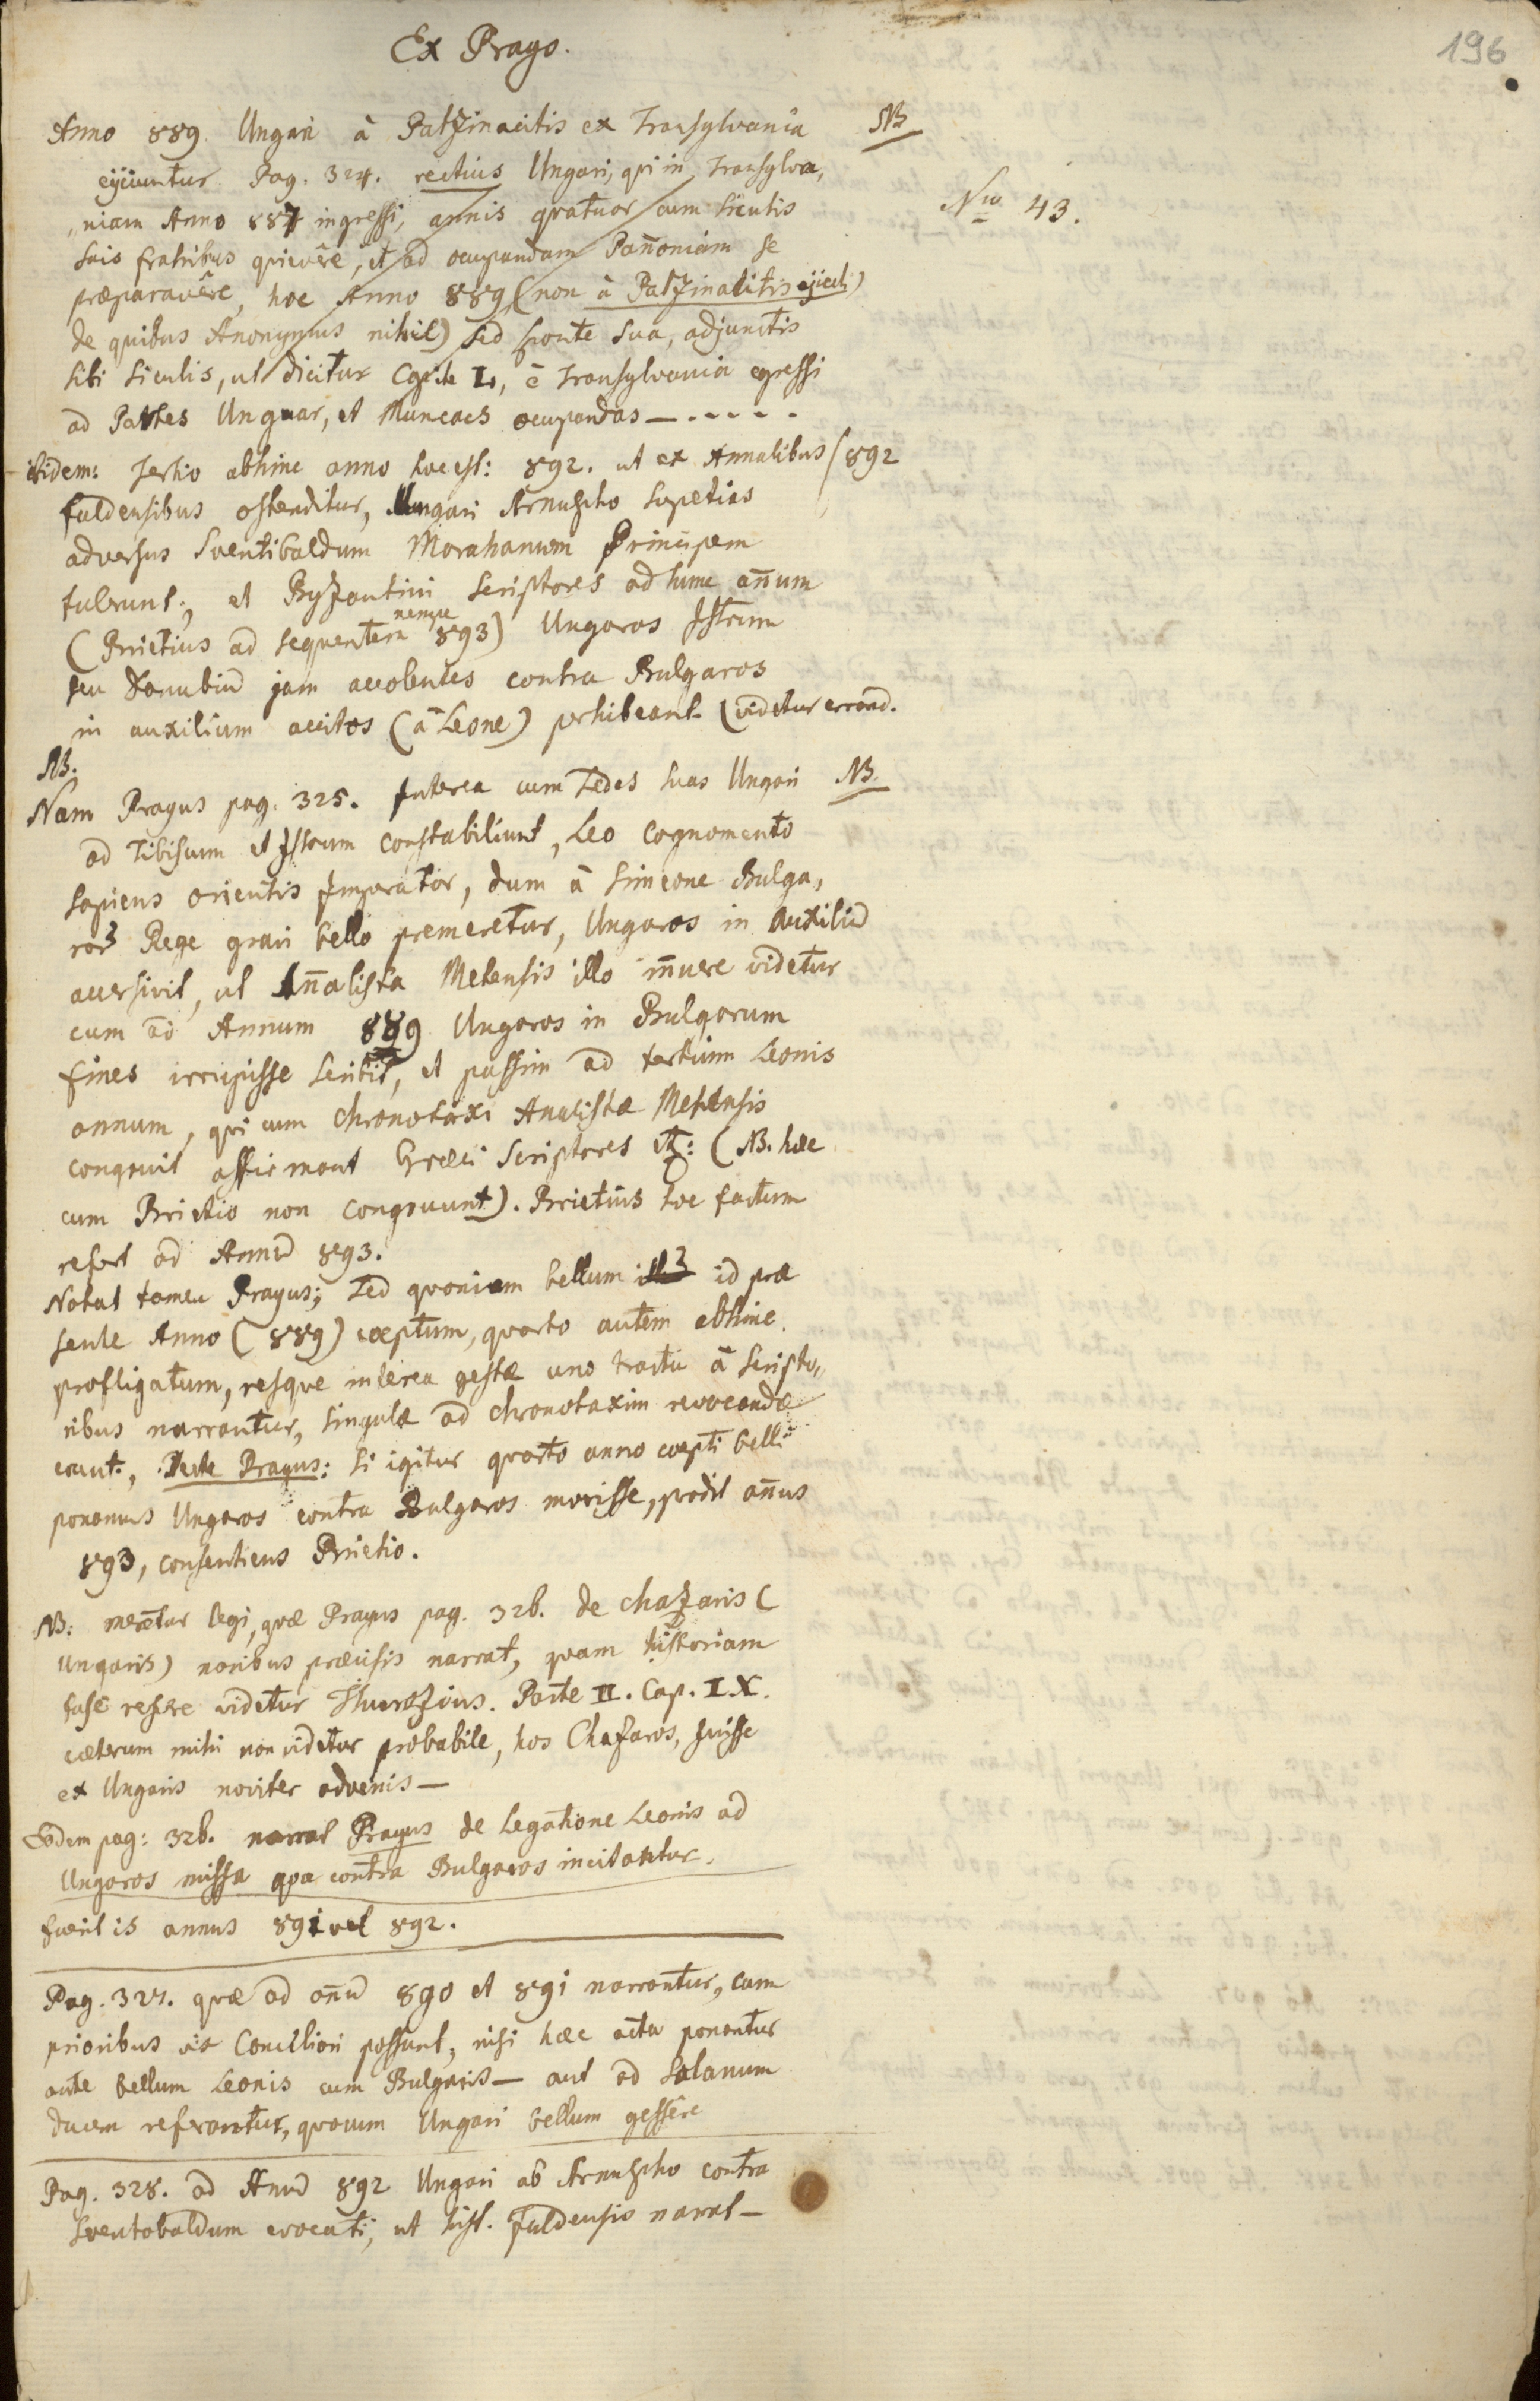 196
Ex Prago.
Anno 889 Ungari à Patzinacitis ex Transylvania NB
ejiciuntur Pag. 324. rectius Ungari, qvi in Transylva,
Nro 43.
,,niam Anno 887 ingressi, annis qvatuor cum Siculis
suis fratribus qvievêre, et ad ocupandam Pan̄oniam se
præparavêre, hoc Anno 889 (non à Patzinacitis ejicti)
de quibus Anonymus nihil) sed sponte sua, adjunctis
sibi Siculis, ut dicitur Cap. de L, è Transylvania egressi
ad Partes Unguar, et Muncacs ocupandas — - - - -
ibidem: Tertio abhinc anno hoc est: 892. ut ex Annalibus /892
fuldensibus ostenditur, Ungari Arnulpho supetias
adversus Sventibaldum Moravanum Principem
tulerunt; et Byzantini Scriptores ad hunc an̄um
(Brietius ad sequentem nempe 893) Ungaros Istrum
seu Danubiū jam accolentes contra Bulgaros
in auxilium accitos (à Leone) perhibeant. (videtur errand.
NB.
Nam Pragus pag. 325. Interea cum Sedes suas Ungari NB
ad Tibisum et Istrum constabiliunt, Leo cognomento
Sapiens orientis Imperator, dum à Simeone Bulga,
roꝝ Rege gravi bello premeretur, Ungaros in auxiliū
accersivit, ut An̄alista Metensis illo in̄uere videtur
cum ad Annum 889 Ungaros in Bulgarum
fines irrupisse scribit, et passim ad tertium Leonis
annum, qvi cum chronotaxi Analistæ Metensis
congruit affirmant Græci Scriptores etc: (NB. hæc
cum Brietio non congruunt). Brietius hoc factum
refert ad Annū 893.
Notat tamen Pragus; Sed qvoniam bellum id præ
sente Anno (889) cœptum, qvarto autem abhinc
profligatum, resque interea gestæ uno tractu à Scripto,,
ribus narrantur, singulæ ad chronotaxim revocandæ
erunt., Pragus: si igitur qvarto anno cœpti belli
ponamus Ungaros contra Bulgaros movisse, prodit an̄us
893, consentiens Brietio.
NB: meretur legi, qvæ Pragus pag. 326. de chazaris (
Ungaris) noribus præcisis narrat, qvam historiam
fuse referre videtur Thurozius. Parte II. Cap. IX.
cæterum mihi non videtur probabile, hos Chazaros, fuisse
ex Ungaris noviter advenis—
Eodem pag: 326. narrat Pragus de Legatione Leonis ad
Ungaros missa qva contra Bulgaros incitantur.
fuerit is annus 891 vel 892.
Pag. 327. qvæ ad an̄ū 890 et 891 narrantur, cum
prioribus vix Conciliari possunt, nisi hæc acta ponantur
ante bellum Leonis cum Bulgaris— aut ad Salanum
ducem referantur, qvocum Ungari bellum gessêre
Pag. 328. ad Annū 892 Ungari ab Arnulpho contra
Sventobaldum evocati, ut hist. fuldensis narrat—